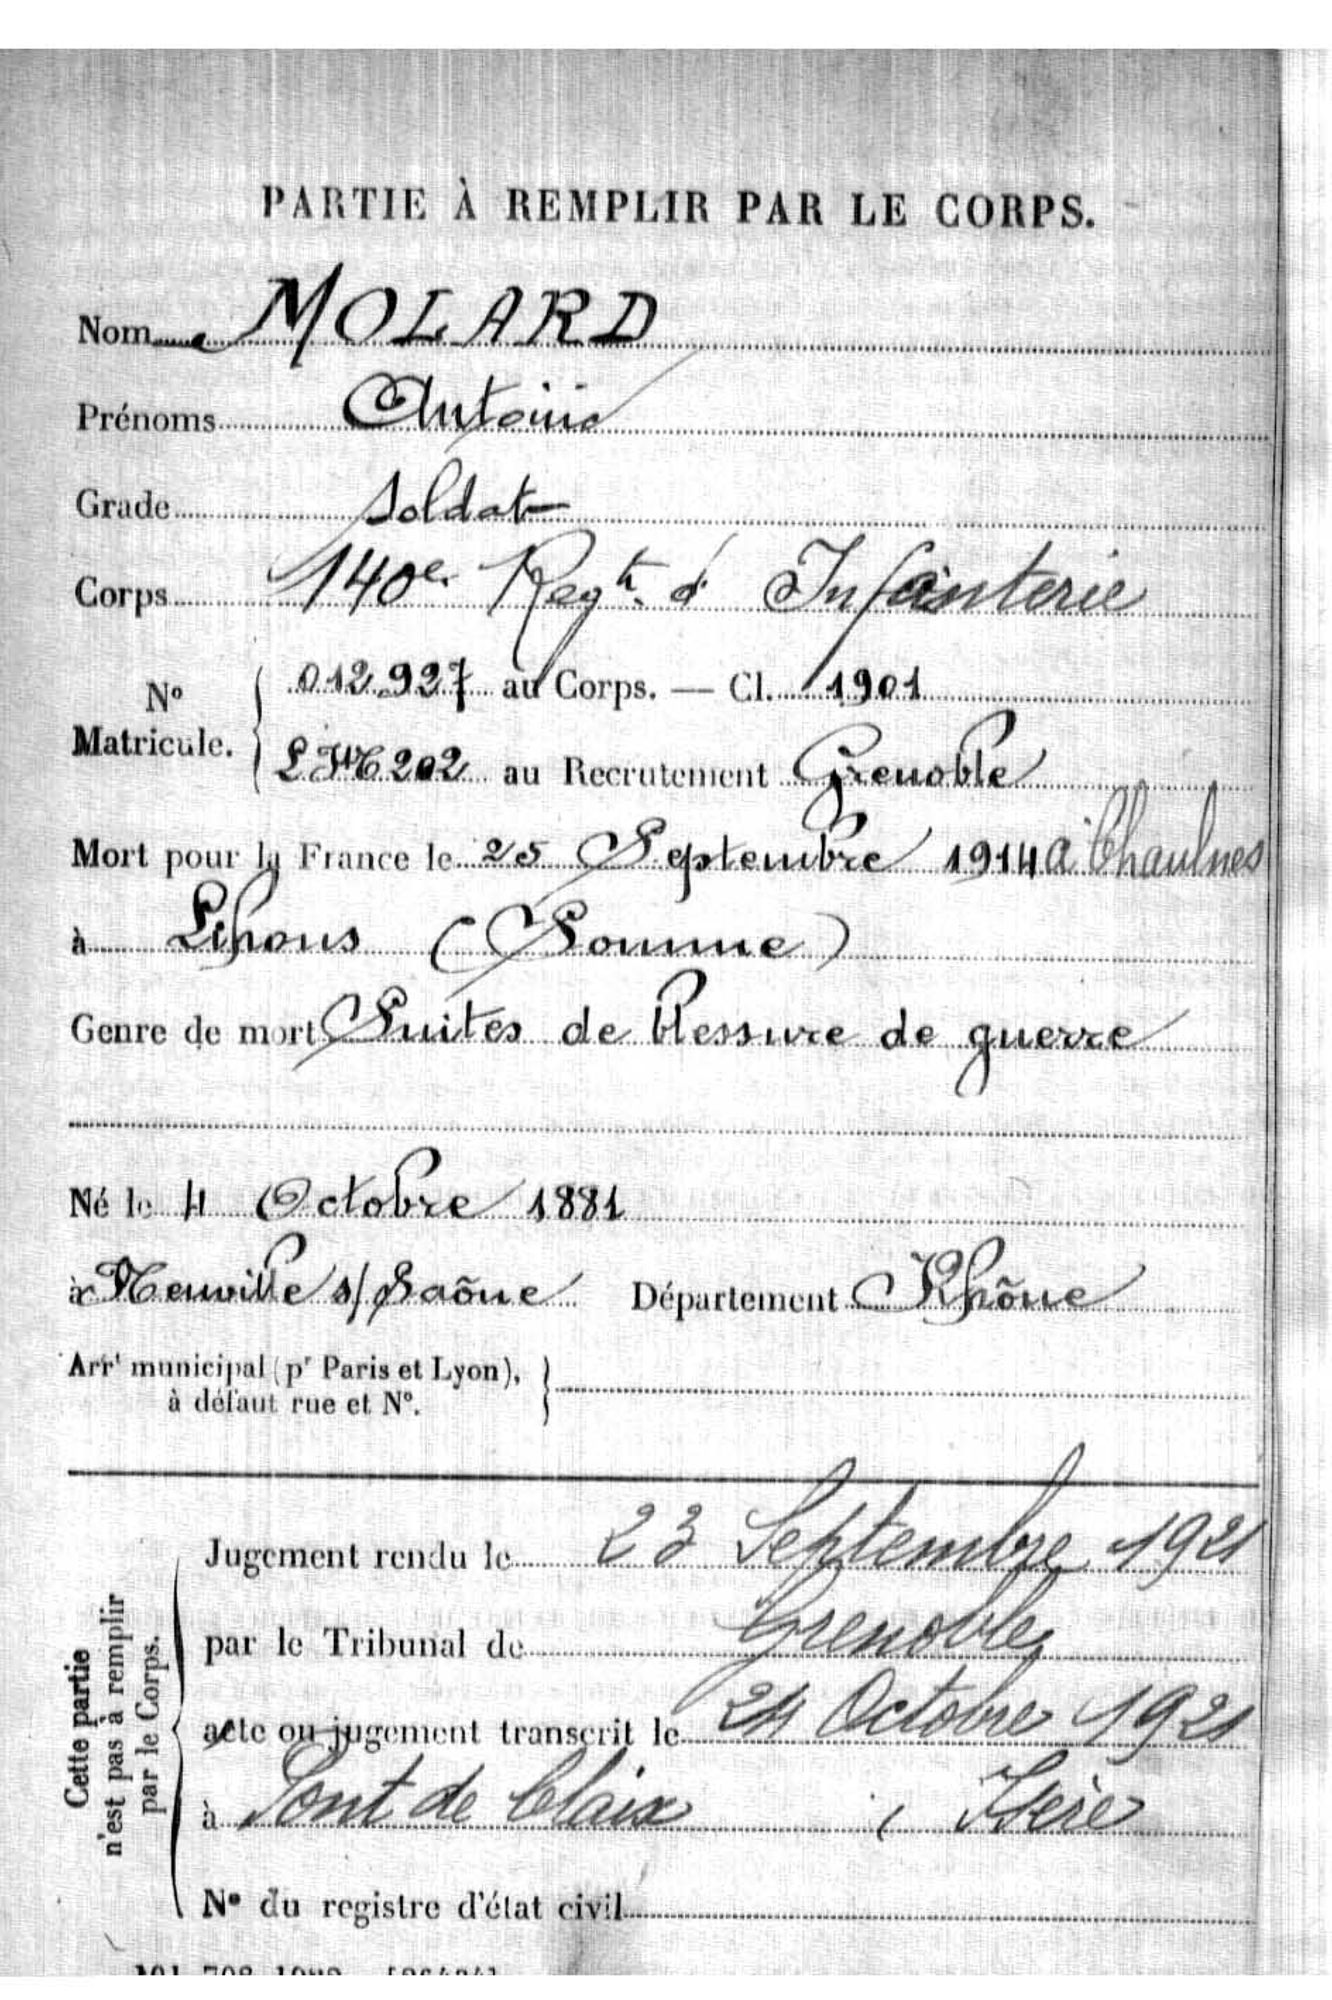 PARTIE À REMPLIR PAR LE CORPS.
Nom MOLARD
Prénoms Antoine
Grade Soldat
Corps 140e Regt. d' Infanterie
No Matricule. { 012.927 au Corps. — Cl. 1901
202 au Recrutement Grenoble
Mort pour la France le 25 Septembre 1914 à Chaulnes
à Lihons (Somme)
Genre de mort Suites de blessure de guerre
Né le 4 Octobre 1881
à Neuville s/ Saône Département Rhône
Arrt municipal (pr Paris et Lyon), }
à défaut rue et No.
Cette partie
n'est pas à remplir
par le Corps.
Jugement rendu le 23 Septembre 1921
par le Tribunal de Grenoble
acte ou jugement transcrit le 24 Octobre 1921
à Pont de Claix , Isère
No du registre d'état civil